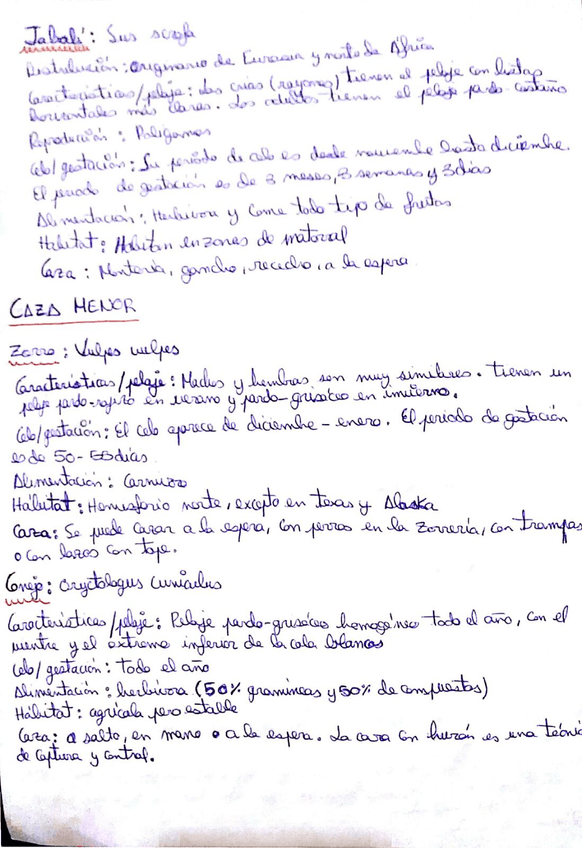 Jabalí: Sus scrofa
Distribución: originario de Eurasia y norte de África
Características/pelaje: Las crías (rayones) tienen el pelaje con listas
horizontales más claras. Los adultos tienen el pelaje pardo-castaño
Reproducción: Polígamos
Celo/gestación: Su período de celo es desde noviembre hasta diciembre.
El periodo de gestación es de 3 meses, 3 semanas y 3 días
Alimentación: Herbívoro y come todo tipo de frutos
Hábitat: Habitan en zonas de matorral
Caza: Montería, gancho, rececho, a la espera
CAZA MENOR
Zorro: Vulpes vulpes
Características/pelaje: Machos y hembras son muy similares. tienen un
pelaje pardo-rojizo en verano y pardo-grisáceo en invierno.
Celo/gestación: El celo aparece de diciembre - enero. El periodo de gestación
es de 50-55 días
Alimentación: Carnívoro
Hábitat: Hemisferio norte, excepto en texas y Alaska
Caza: Se puede cazar a la espera, con perros en la zorrería, con trampas
o con lazos con tope.
Conejo: Oryctologus cuniculus
Características/pelaje: Pelaje pardo-grisáceo homogéneo todo el año, con el
vientre y el extremo inferior de la cola blancos
Celo/gestación: todo el año
Alimentación: herbívora (50% gramíneas y 50% de compuestas)
Hábitat: agrícola pero estable
Caza: a salto, en mano o a la espera. La caza con hurón es una técnic
de captura y control.